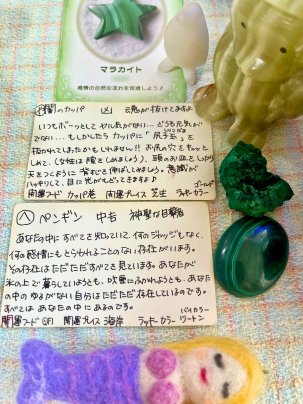 マラカイト
感情の自然な流れを促進しよう♪
闇のカッパ 凶 魂が抜けてますよ
いつもボーッとして やル気がない…どうも元気がで
ない…もしかしたら カッパに「尻子玉」を
抜かれてしまったのかもしれません!! お尻の穴をキュッと
しめて、(女性は膣をしめましょう)、頭のお皿をしっかり
天とつなぐように 背すじを伸ばしてみましょう。意識が
ハッキリして、目に光がもどってきますよ! ゴールド
開運フード カッパ巻 開運プレイス 芝生 ラッキーカラー
ペンギン 中吉 神聖な目撃者
あなたの中に すべてを知っていて、何のジャッジもなく、
何の感情にもとらわれることのない存在がいます。
その存在は ただただすべてを見ています。あなたが
氷の上で暮らしていようとも、吹雪にふかれようとも、あなた
の中のゆるがない自分はただただ存在しているのです。
すべては あなたの中にあるのです。
開運フード 開運プレイス 海岸 ラッキーカラー バイカラー
ツートン